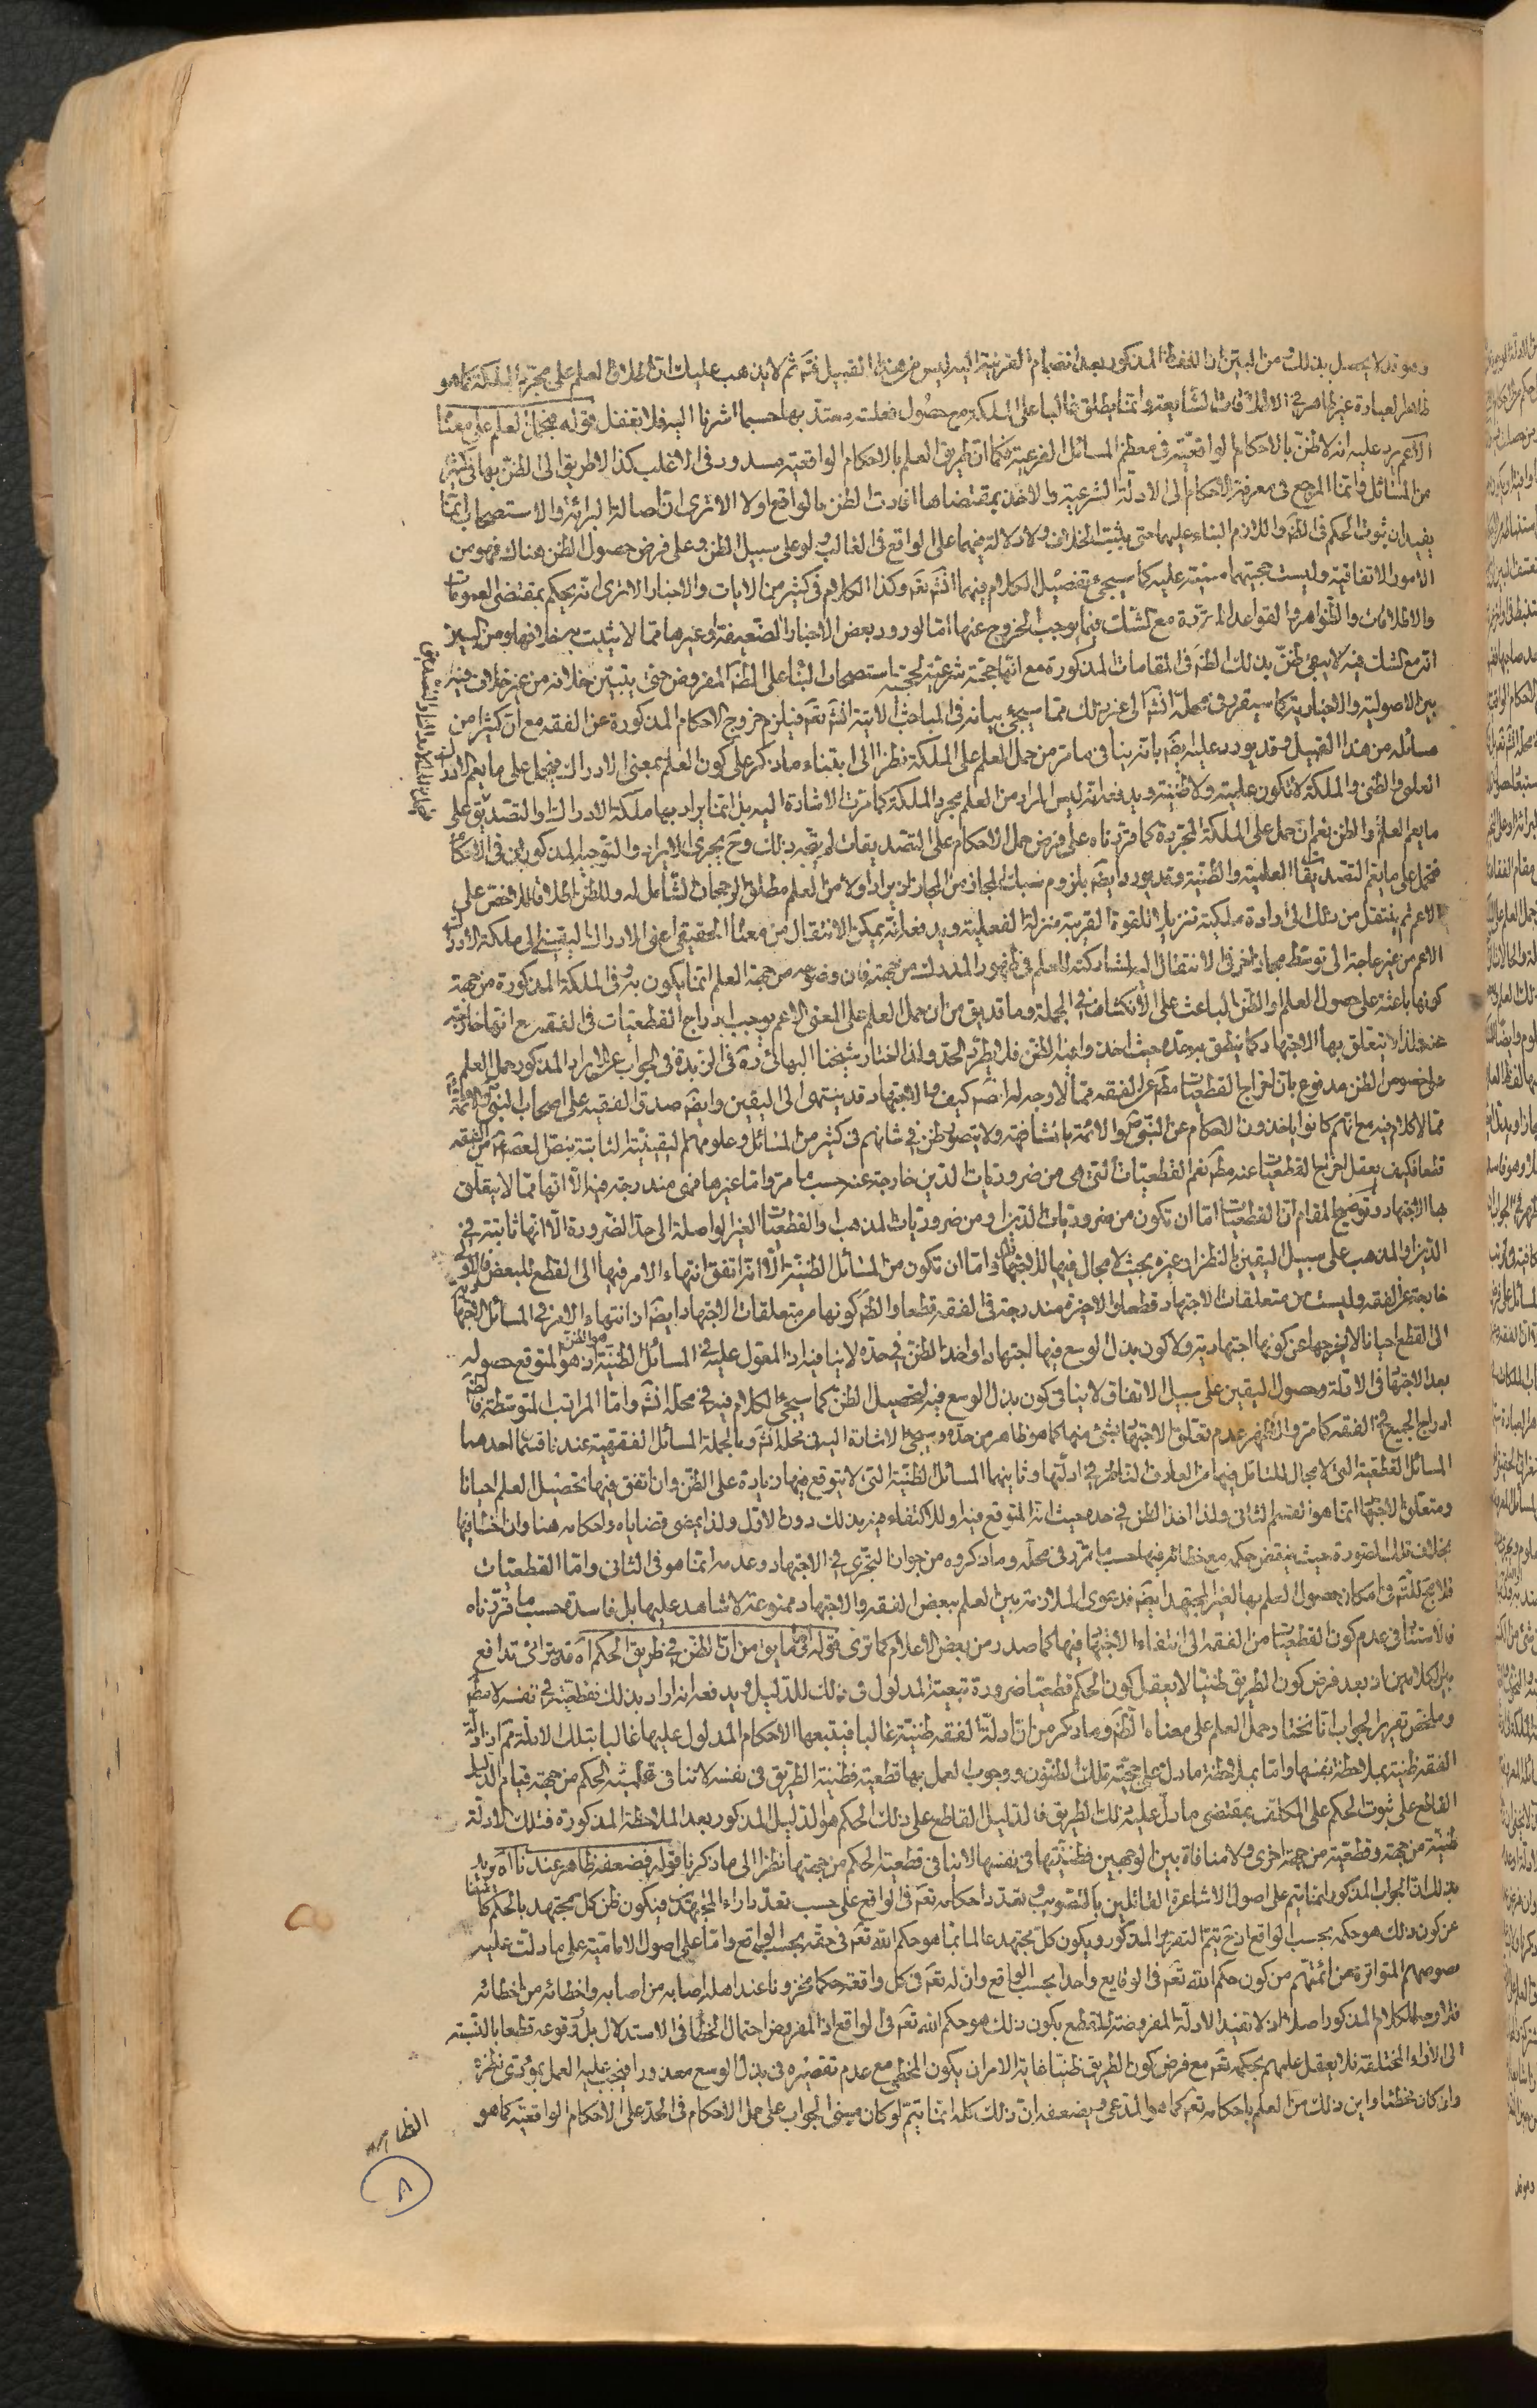 وهو قد لا يحصل بذلك من البين ان اللفظ المذكور بعد انضمام القرينة اليه ليس من هذا القبيل فتم ثم لا يذهب عليك ان اطلاق العلم على مجرد الملكة كما هو
ظاهر العبارة غير ظاهر في الاطلاقات الشايعة وانما يطلق غالبا على الملكة مع حصول فعلية معتد بها حسبما اشرنا اليه فلا تغفل قوله فيحمل العلم على معناه
الاعم يرد عليه انه لا ظن بالاحكام الواقعية في معظم المسائل الفرعية فكما ان طريق العلم بالاحكام الواقعية مسدود في الاغلب كذا لا طريق الى الظن بها في كثير
من المسائل وانما المرجع في معرفة الاحكام الى الادلة الشرعية والاخذ بمقتضاها افادت الظن بالواقع اولا الا ترى ان اصالة البرائة والاستصحاب انما
يفيدان ثبوت الحكم في الظ واللازم البناء عليهما حتى يثبت الخلاف ولا دلالة فيهما على الواقع في الغالب ولو على سبيل الظن وعلى فرض حصول الظن هناك فهو من
الامور الاتفاقية وليست حجيتهما مبنية عليه كما سيجئ تفصيل الكلام فيهما انش تع وكذا الكلام في كثير من الايات والاخبار الا ترى انه يحكم بمقتضى العمومات
والاطلاقات والظواهر والقواعد المقررة مع الشك فيما يوجب الخروج عنها اما لورود بعض الاخبار الضعيفة او غيرها مما لا يثبت به خلافها ومن البين
انه مع الشك فيه لا يبقى ظن بذلك الظ في المقامات المذكورة مع انها حجة شرعية لحجية استصحاب البناء على الظ المفروض حتى يتبين خلافه من غير خلاف فيه
بين الاصولية والاخبارية كما سيقرر في محله انش الى غير ذلك مما سيجئ بيانه في المباحث الاتية انش تع فيلزم خروج الاحكام المذكورة عن الفقه مع ان كثيرا من
مسائله من هذا القبيل وقد يورد عليه ايضا بانه ينافي ما مر من حمل العلم على الملكة نظرا الى ابتناء ما ذكر على كون العلم بمعنى الادراك فيحمل على ما يعم الادراك
العلمي والظني والملكة لا تكون علمية ولا ظنية ويدفعه انه ليس المراد من العلم مجرد الملكة كما مرت الاشارة اليه بل انما يراد بها ملكة الادراك والتصديق على
ما يعم العلم والظن نعم ان حمل على الملكة المجردة كما قررناه على فرض حمل الاحكام على التصديقات لم يتجه ذلك وح يجري الايراد والتوجيه المذكورين في الاحكام
فتحمل على ما يعم التصديقات العلمية والظنية وقد يورد ايضا بلزوم سبك المجاز من المجاز اذ يراد اولا من العلم مطلق الرجحان الشامل له وللظن اطلاقا للاخص على
الاعم ثم ينتقل من ذلك الى ارادة ملكيته تنزيلا للقوة القريبة منزلة الفعلية ويدفعه انه يمكن الانتقال من معناه الحقيقي اعني الادراك اليقيني الى ملكة الادراك
الاعم من غير حاجة الى توسط مجاز اخر في الانتقال اليه لمشاركته للعلم في ظهور المدرك من جهته فان وضوحه من جهة العلم انما يكون به وفي الملكة المذكورة من جهة
كونها باعثة على حصول العلم او الظن الباعث على الانكشاف في الجملة وما قد يق من ان حمل العلم على المعنى الاعم يوجب ادراج القطعيات في الفقه مع انها خارجة
عنه ولذا لا يتعلق بها الاجتهاد كما ينطق به حده حيث اخذوا فيه الظن فلا يطرد الحد ولذا اختار شيخنا البهائي ره في الزبدة في الجواب عن الايراد المذكور حمل العلم
على خصوص الظن مدفوع بان اخراج القطعيات مط عن الفقه مما لا وجه له ايضا كيف والاجتهاد قد ينتهي الى اليقين وايضا صدق الفقيه على اصحاب النبي ص والائمة
مما لا كلام فيه مع انهم كانوا ياخذون الاحكام عن النبي ص والائمة بالمشافهة ولا يتصور ظن في شانهم في كثير من المسائل وعلومهم اليقينية الثابتة بنص المعصوم من الفقه
قطعا فكيف يعقل اخراج القطعيات عنه مط نعم القطعيات التي هي من ضروريات الدين خارجة عنه حسب ما مر واما غيرها فهي مندرجة فيه الا انها مما لا يتعلق
بها الاجتهاد وتوضيح المقام ان القطعيات اما ان تكون من ضروريات الدين او من ضروريات المذهب والقطعيات الغير الواصلة الى حد الضرورة الا انها ثابتة في
الدين او المذهب على سبيل اليقين بالنظر او غيره بحيث لا مجال فيها للاجتهاد واما ان تكون من المسائل الظنية الا انه اتفق انتهاء الامر فيها الى القطع للبعض فالاولى
خارجة عن الفقه وليست من متعلقات الاجتهاد قطعا والاخيرة مندرجة في الفقه قطعا والظ كونها من متعلقات الاجتهاد ايضا اذ انتهاء الامر في المسائل الاجتهادية
الى القطع احيانا لا يخرجها عن كونها اجتهادية ولا كون بذل الوسع فيها اجتهادا واخذ الظن في حده لا ينافيه اذ المعول عليه في المسائل الظنية هو الظن اذ هو المتوقع حصوله
بعد الاجتهاد في الادلة وحصول اليقين على سبيل الاتفاق لا ينافي كون بذل الوسع فيه لتحصيل الظن كما سيجئ الكلام فيه في محله انش واما المراتب المتوسطة فالظ
ادراج الجميع في الفقه كما مر والاظهر عدم تعلق الاجتهاد بشئ منها كما هو ظاهر من حده وسيجئ الاشارة اليه في محله انش وبالجملة المسائل الفقهية عندنا قسمان احدهما
المسائل القطعية التي لا مجال للتامل فيها من العارف الناظر في ادلتها وثانيهما المسائل الظنية التي لا يتوقع فيها زيادة على الظن وان اتفق فيها تحصيل العلم احيانا
ومتعلق الاجتهاد انما هو القسم الثاني ولذا اخذ الظن في حده حيث انه المتوقع فيه وللاكتفاء فيه بذلك دون الاول ولذا يمضي قضاياه واحكامه هنا وان اخطا فيها
بخلاف تلك الصورة حيث ينقض حكمه مع خطائه فيها حسب ما قرر في محله وما ذكروه من جواز التجزي في الاجتهاد وعدمه انما هو في الثاني واما القطعيات
فلا مجال للت‍ـ في امكان حصول العلم بها لغير المجتهد ايضا فدعوى الملازمة بين العلم ببعض الفقه والاجتهاد ممنوعة لا شاهد عليها بل فاسدة حسب ما قررناه
فالاستناد في عدم كون القطعيات من الفقه الى انتفاء الاجتهاد فيها كما صدر من بعض الاعلام كما ترى قوله وما يق من ان الظن في طريق الحكم اه قد يترائى تدافع
بين الكلامين اذ بعد فرض كون الطريق ظنيا لا يعقل كون الحكم قطعيا ضرورة تبعية المدلول في ذلك للدليل ويدفعه انه اراد بذلك قطعيته في نفسه لا مط
وملخص تقرير الجواب انا نختار حمل العلم على معناه الظ وما ذكر من ان ادلة الفقه ظنية غالبا فيتبعها الاحكام المدلول عليها غالبا بتلك الادلة مم اذ ادلة
الفقه ظنية بملاحظة نفسها واما بملاحظة ما دل على حجية تلك الظنون ووجوب العمل بها قطعية فظنية الطريق في نفسه لا تنافي قطعية الحكم من جهة قيام الدليل
القاطع على ثبوت الحكم على المكلف بمقتضى ما دل عليه ذلك الطريق فالدليل القاطع على ذلك الحكم هو الدليل المذكور بعد الملاحظة المذكورة فتلك الادلة
ظنية من جهة وقطعية من جهة اخرى ولا منافاة بين الوجهين فظنيتها في نفسها لا ينافي قطعية الحكم من جهتها نظرا الى ما ذكرنا قوله فضعفه ظاهر عندنا اه يريد
بذلك ان الجواب المذكور انما يتم على اصول الاشاعرة القائلين بالتصويب وتعدد احكامه تع في الواقع على حسب تعدد اراء المجتهدين فيكون ظن كل مجتهد بالحكم كاشفا
عن كون ذلك هو حكمه بحسب الواقع اذ ح يتم التقرير المذكور ويكون كل مجتهد عالما بما هو حكم الله تع في حقه بحسب الواقع واما على اصول الامامية على ما دلت عليه
نصوصهم المتواترة عن ائمتهم من كون حكم الله تع في الوقايع واحدا بحسب الواقع وان له تع في كل واقعة حكما مخزونا عند اهله اصابه من اصابه واخطائه من اخطائه
فلا وجه للكلام المذكور اصلا اذ لا تفيد الادلة المفروضة القطع بكون ذلك هو حكم الله تع في الواقع اذ المفروض احتمال الخطا في الاستدلال بل وقوعه قطعا بالنسبة
الى الاراء المختلفة فلا يعقل علمهم بحكمه تع مع فرض كون الطريق ظنيا غاية الامر ان يكون المخطي مع عدم تقصيره في بذل الوسع معذورا فيجب عليه العمل بمؤدى نظره
وان كان مخطئا واين ذلك من العلم باحكامه تع كما هو المدعى ويضعفه ان ذلك كله انما يتم لو كان مبنى الجواب على حمل الاحكام في الحد على الاحكام الواقعية كما هو
الظاهر
٨